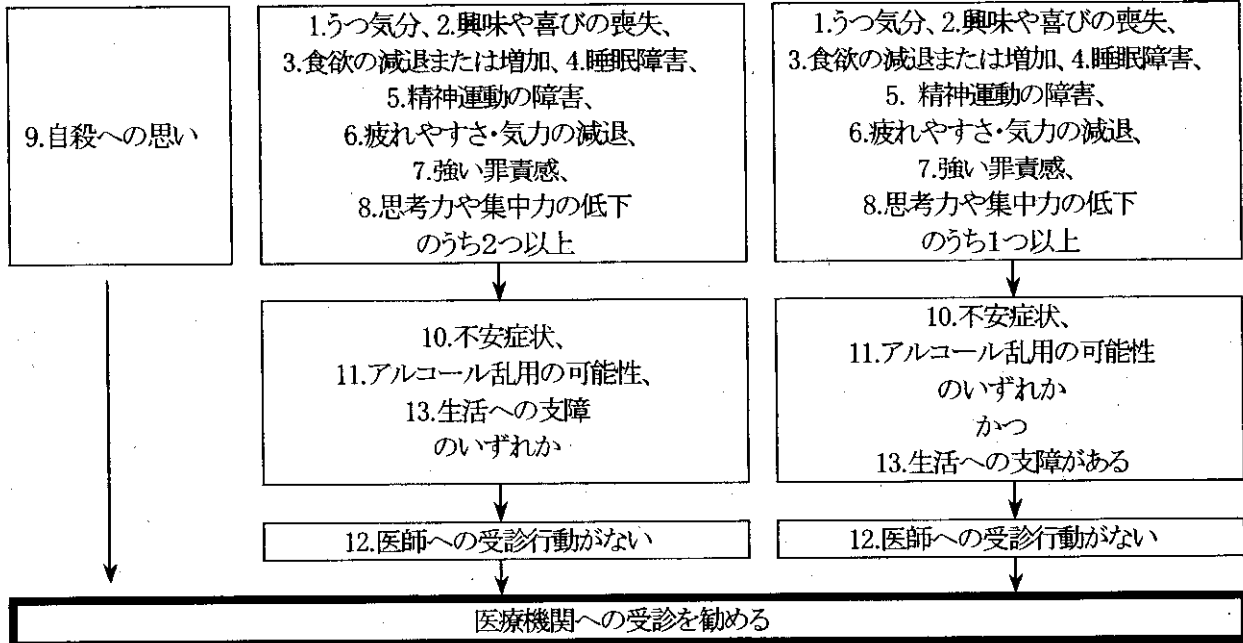 9.自殺への思い
1.うつ気分、2.興味や喜びの喪失、
3.食欲の減退または増加、4.睡眠障害、
5.精神運動の障害、
6.疲れやすさ・気力の減退、
7.強い罪責感、
8.思考力や集中力の低下
のうち2つ以上
10.不安症状、
11.アルコール乱用の可能性、
13.生活への支障
のいずれか
12.医師への受診行動がない
1.うつ気分、2.興味や喜びの喪失、
3.食欲の減退または増加、4.睡眠障害、
5. 精神運動の障害、
6.疲れやすさ・気力の減退、
7.強い罪責感、
8.思考力や集中力の低下
のうち1つ以上
10.不安症状、
11.アルコール乱用の可能性
のいずれか
かつ
13.生活への支障がある
12.医師への受診行動がない
医療機関への受診を勧める